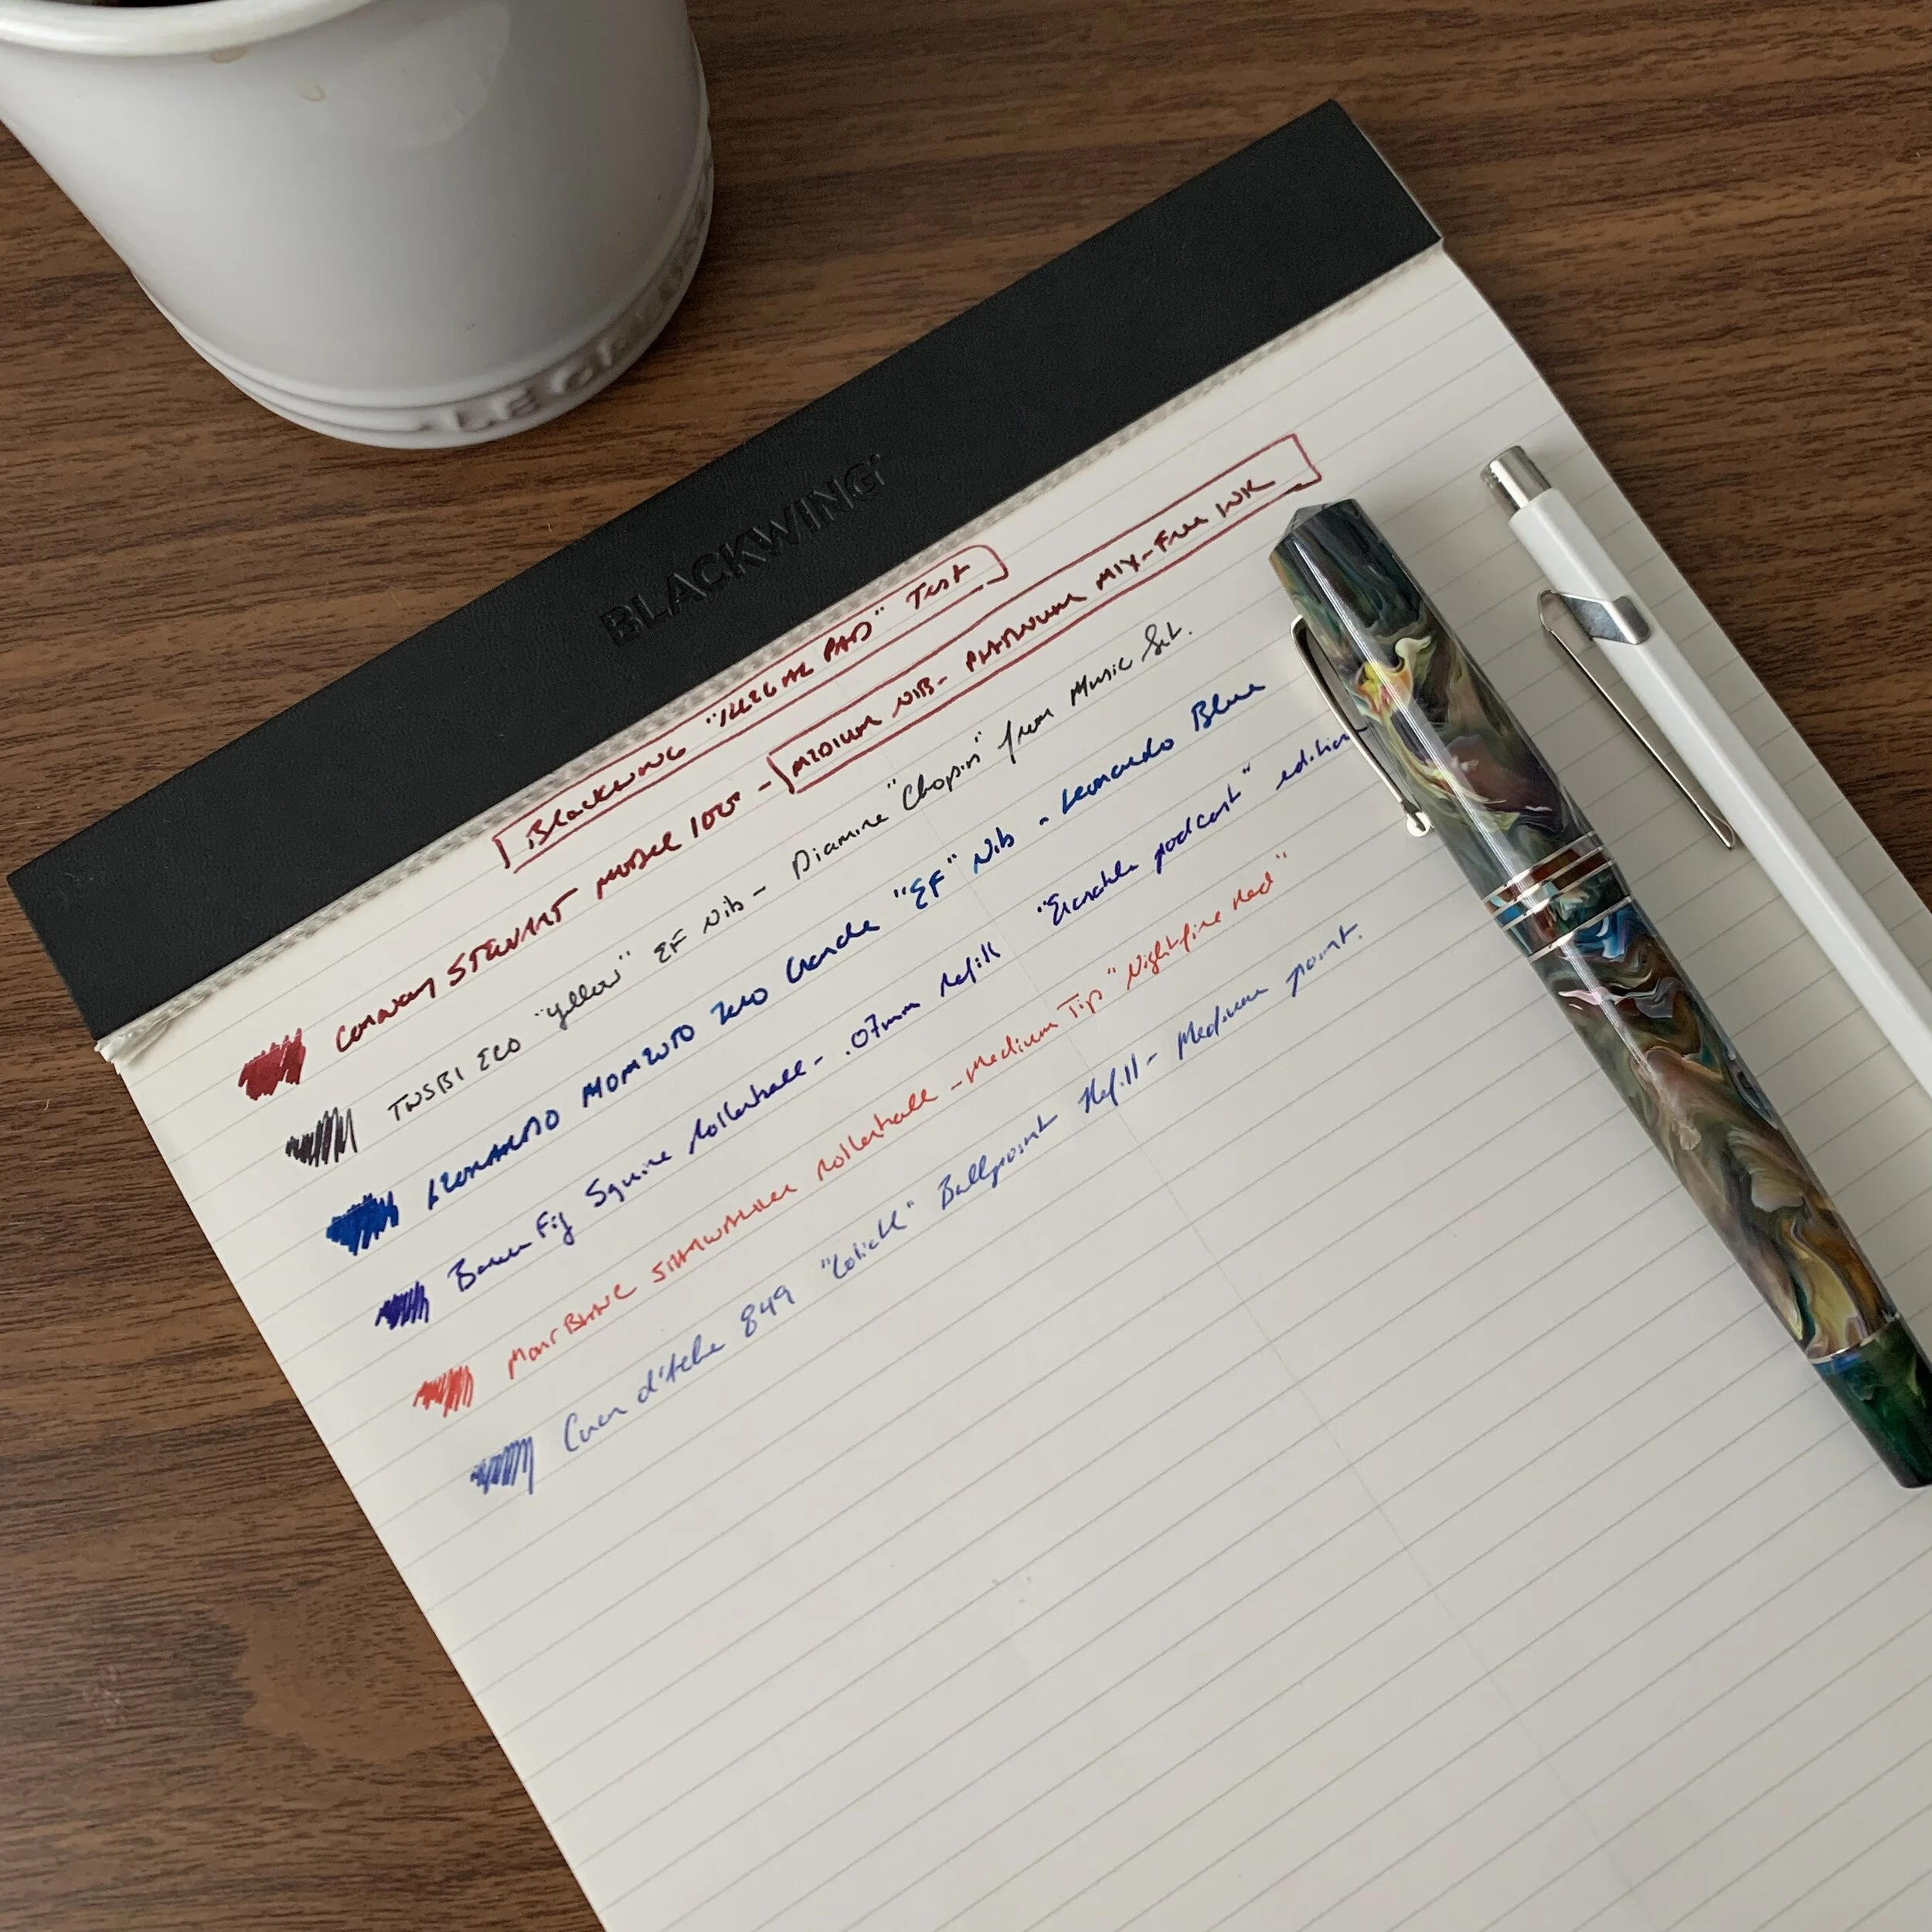 LE CREUSET
BLACKWING
BLACKWING "ILLEGAL PAD" TEST
CONWAY STEWART MODEL 100 - MEDIUM NIB - PLATINUM MIX-FREE INK
TWSBI ECO "Yellow" EF Nib - Diamine "Chopin" from Music Set.
LEONARDO MOMENTO ZERO Grande "EF" Nib - Leonardo Blue
Baron Fig Squire Rollerball - .07mm refill "Erasable podcast" edition
MONTBLANC STARWALKER Rollerball - Medium Tip "Nightfire Red"
Caran d'Ache 849 "Goliath" Ballpoint Refill - Medium point.